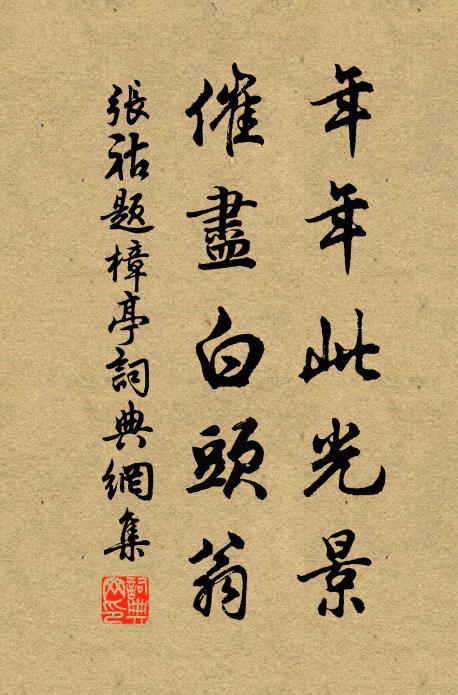 年年此光景
催盡白頭翁
張祜題樟亭詞典網集
詞典網印